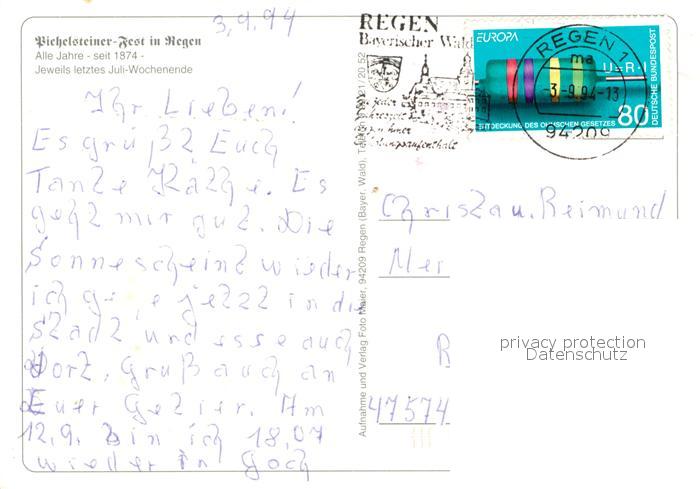 3.9.94
Pichelsteiner-Fest in Regen
Alle Jahre - seit 1874 -
Jeweils letztes Juli-Wochenende
Ihr Lieben!
Es grüßt Euch
Tante Käthe. Es
geht mir gut. Die
Sonne scheint wieder
ich gehe jetzt in die
Stadt und esse auch
dort. Gruß auch an
Euer Getier. Am
12.9. bin ich 18.07
wieder in Goch
Aufnahme und Verlag Foto Maier, 94209 Regen (Bayer. Wald),
REGEN
Bayerischer Wald
zu jeder
Jahreszeit
zu einer
Erholungsaufenthalt
EUROPA
U=R·I
ENTDECKUNG DES OHMSCHEN GESETZES
80
DEUTSCHE BUNDESPOST
REGEN 1
ma
-3.-9.94-13
94209
Christa u. Reimund
Mer
R
47574
privacy protection
Datenschutz